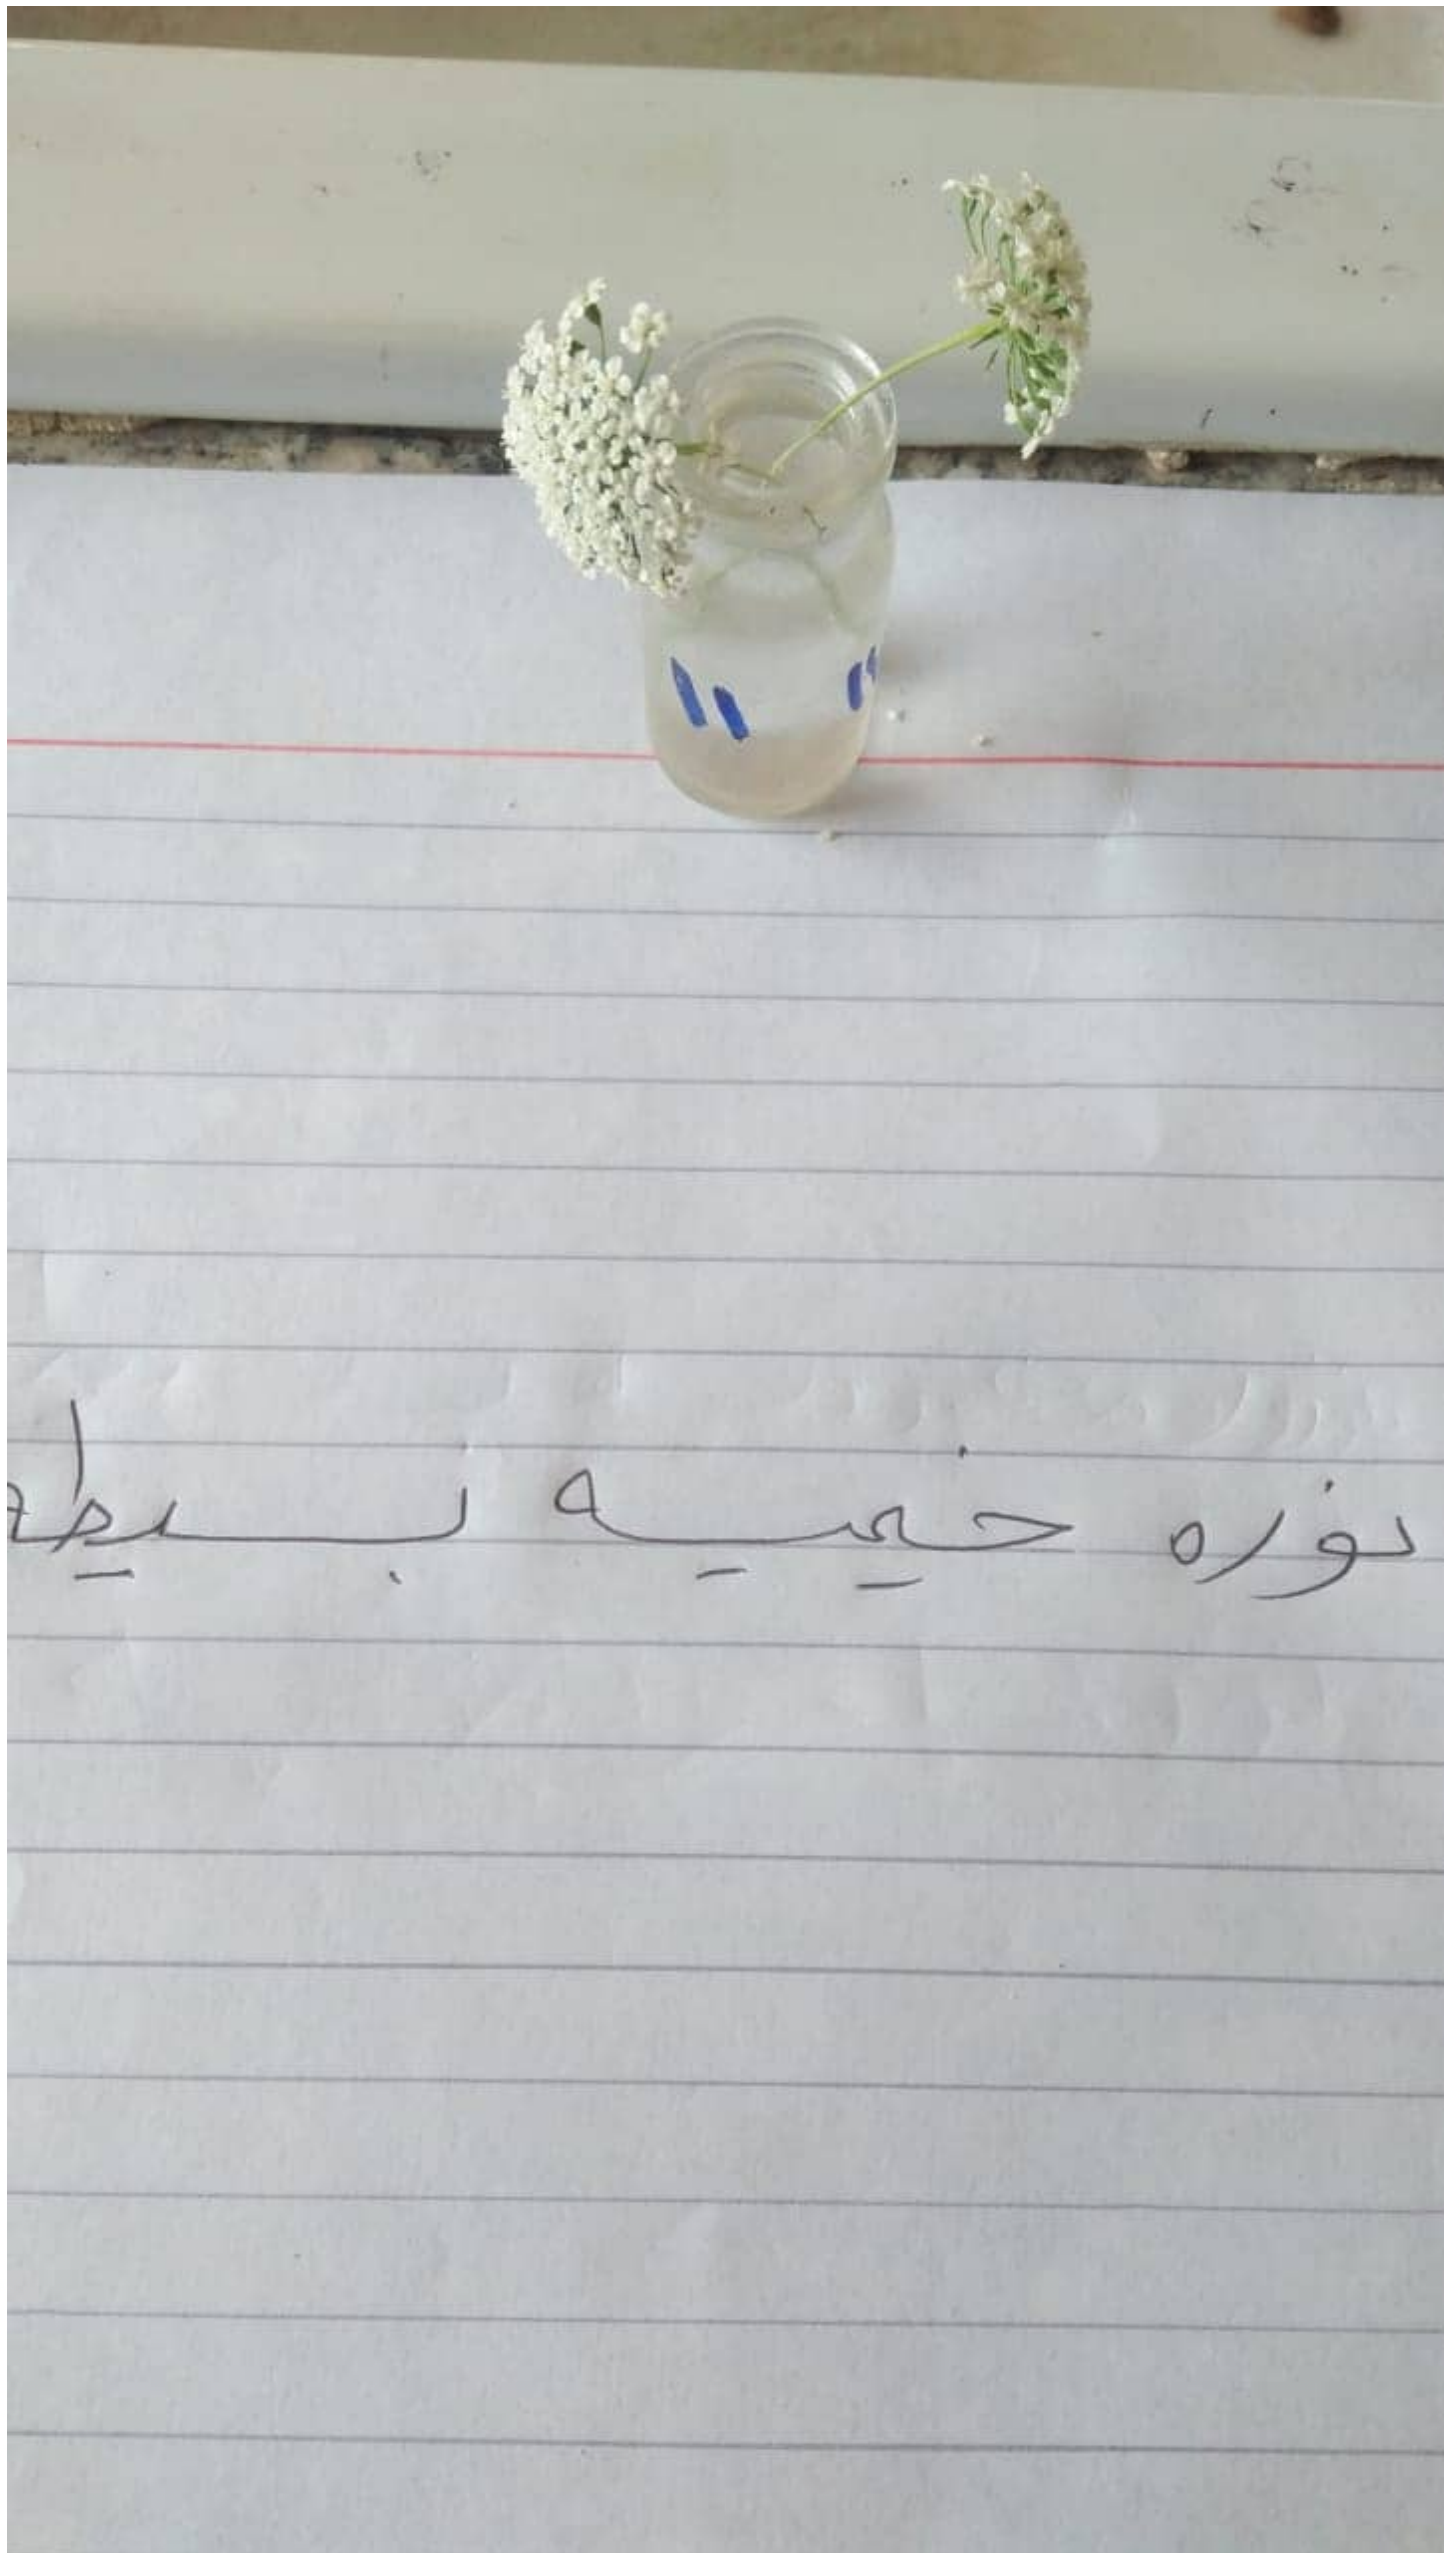 نوره خيميه بسيطه